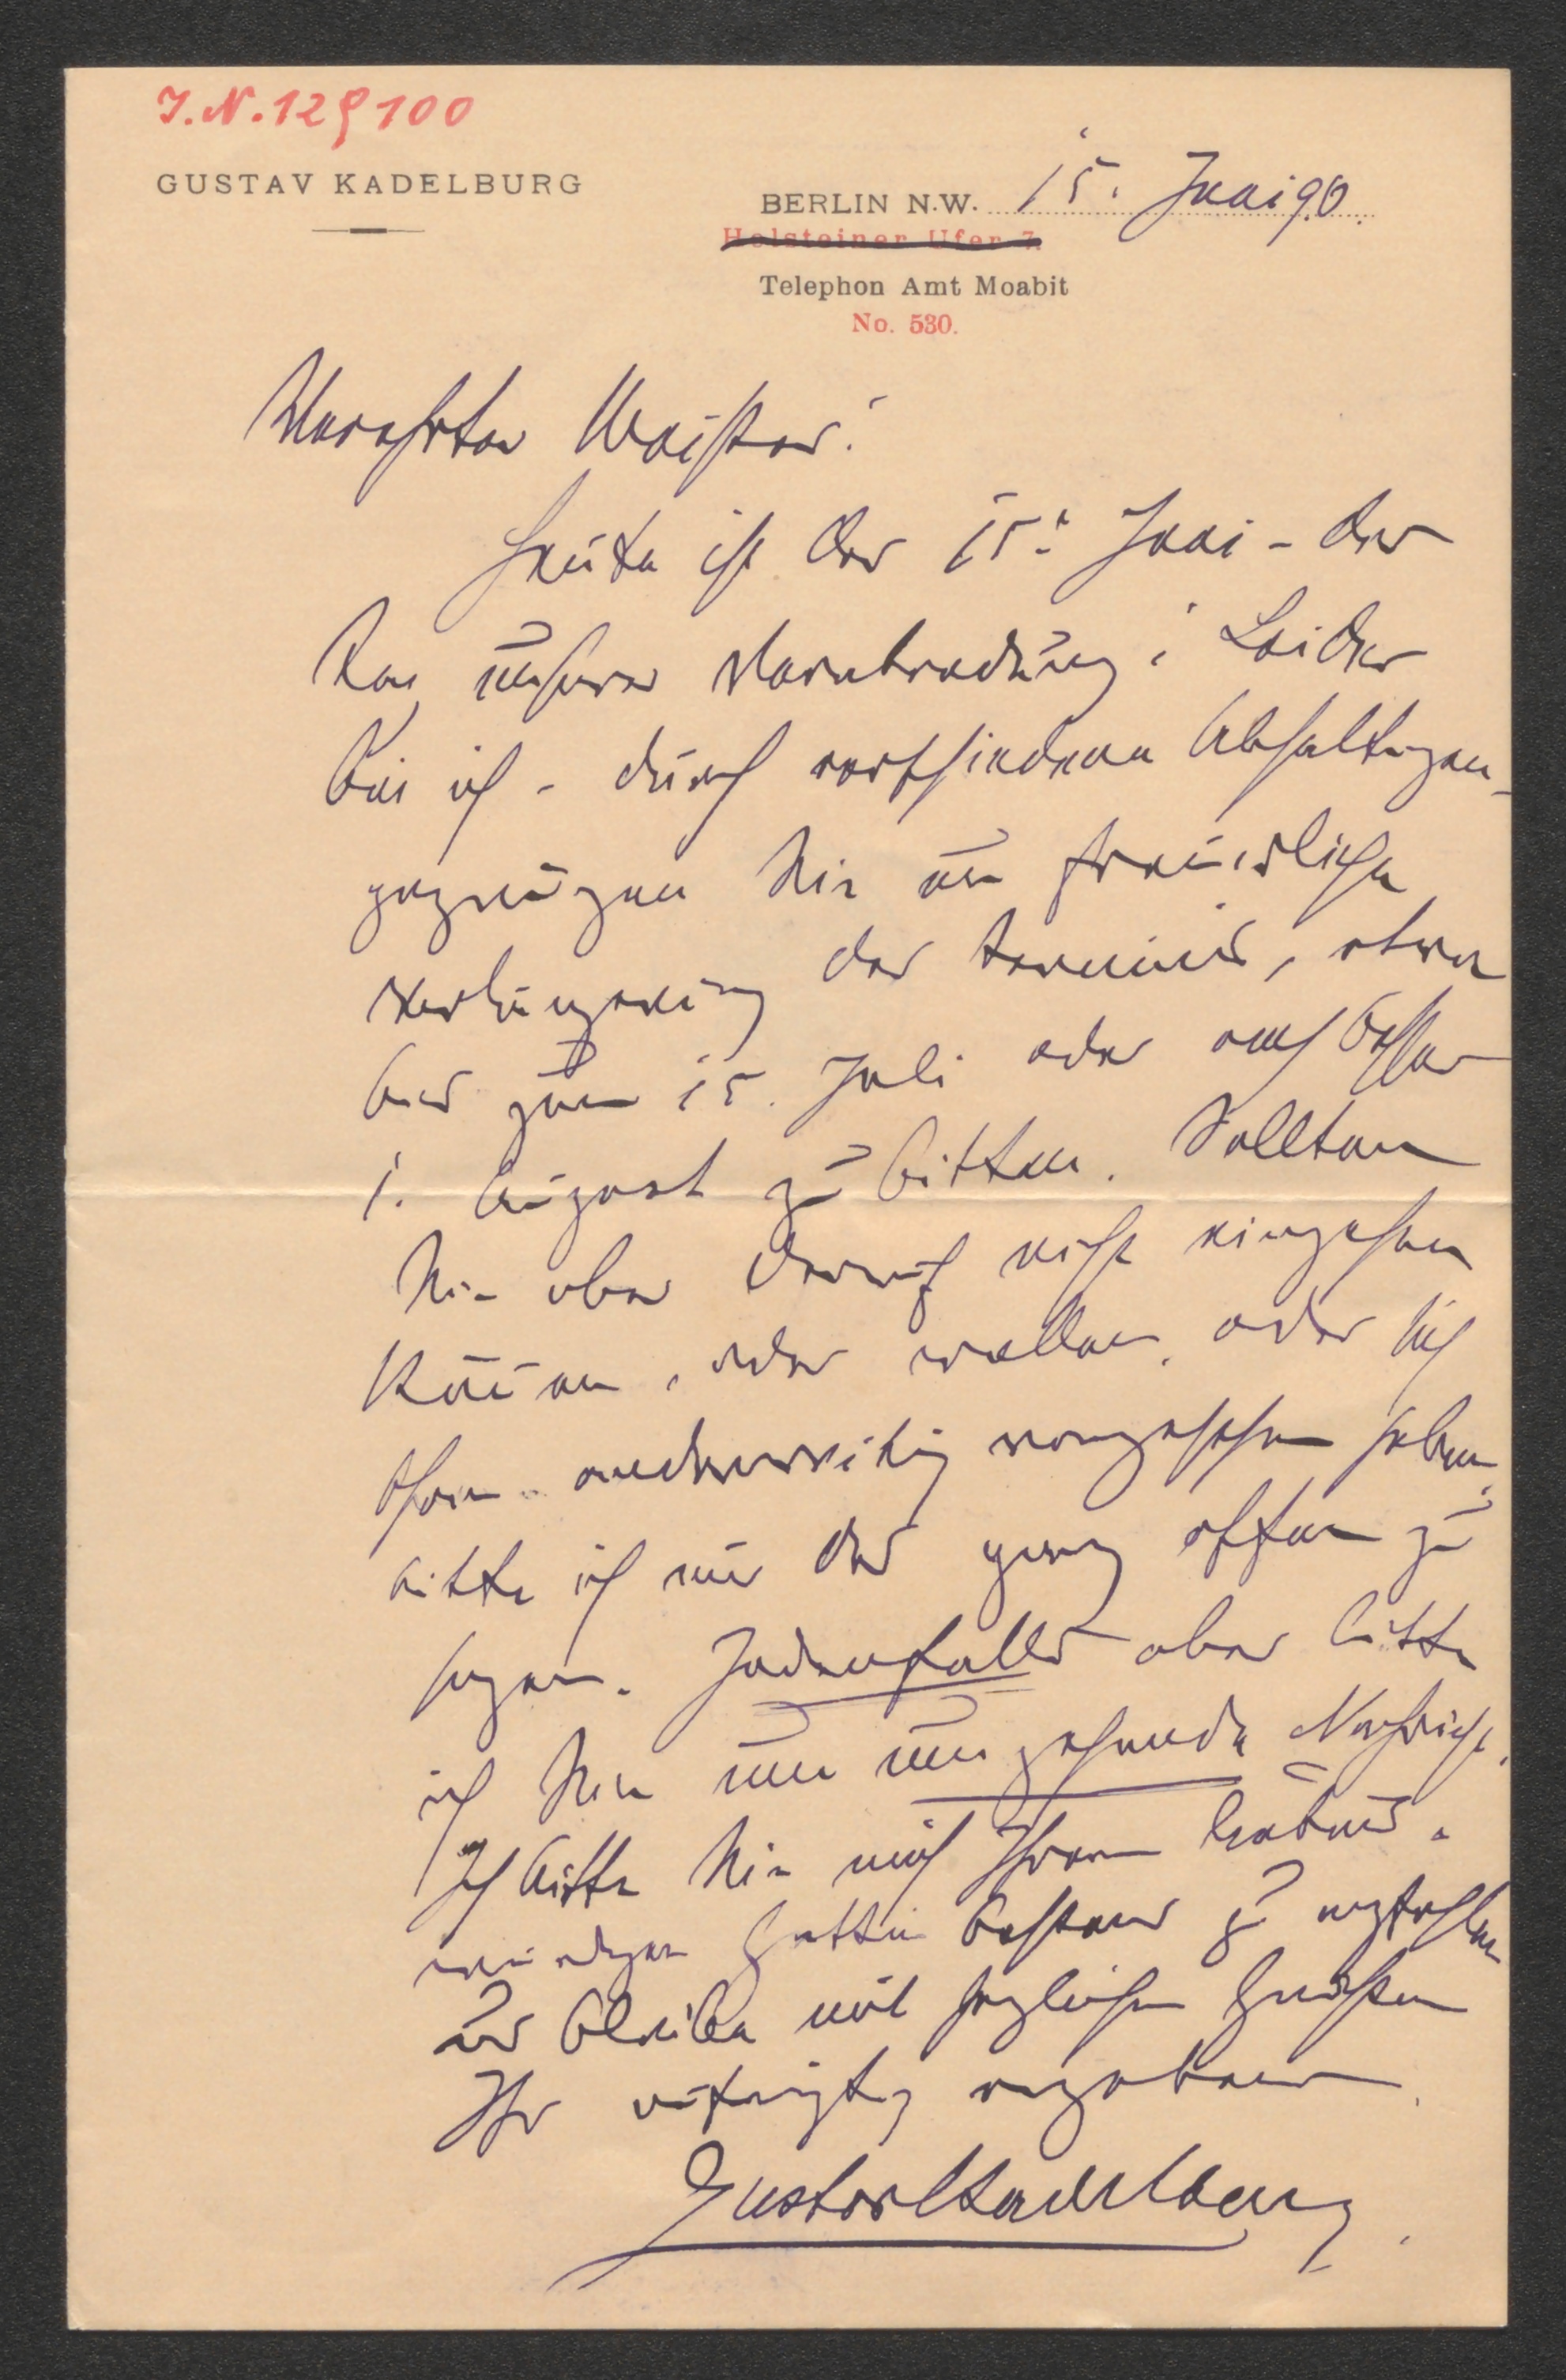 J.N. 129100
GUSTAV KADELBURG
BERLIN N.W. 15. Juni 90.
Holsteiner Ufer 7.
Telephon Amt Moabit
No. 530.
Verehrter Meister!
Heute ist der 15. Juni – der
Tag unserer Verabredung! Leider
bin ich – durch verschiedene Abhaltungen –
gezwungen Sie um freundliche
Verlängerung des Termins, etwa
bis zum 15. Juli oder noch besser
1. August zu bitten. Sollten
Sie aber darauf nicht eingehen
können, oder wollen, oder sich
schon anderweitig vorgesehen haben,
bitte ich mir das ganz offen zu
sagen. Jedenfalls aber bitte
ich Sie um umgehende Nachricht.
Ich bitte Sie mich Ihrer liebens-
würdigen Gattin bestens zu empfehlen
und bleibe mit herzlichen Grüßen
Ihr aufrichtig ergebener
Gustav Kadelburg.